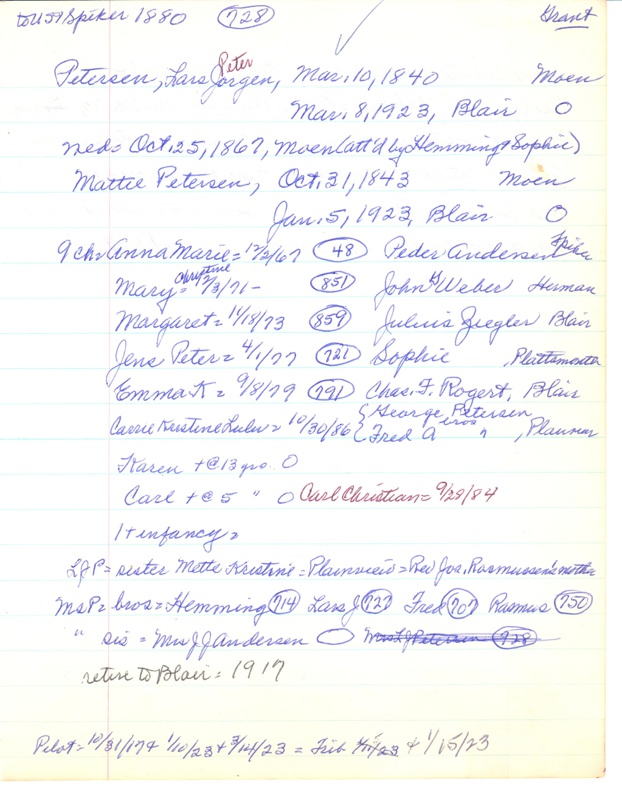 to USA Spiker 1880 728 Grant
Petersen, Lars Jorgen, Peter Mar. 10, 1840 Moen
Mar. 8, 1923, Blair O
med= Oct. 25, 1867, Moen (att'd by Hemming & Sophie)
Mattie Petersen, Oct. 31, 1843 Moen
Jan. 5, 1923, Blair O
9 ch= Anna Marie = 12/2/67 48 Peder Andersen Spiker
Mary Christine = 2/3/71- 851 John G Weber Herman
Margaret = 11/18/73 859 Julius Ziegler Blair
Jens Peter = 4/1/77 721 Sophie , Plattsmouth
Emma K = 9/8/79 791 Chas. F. Rogert, Blair
Carrie Kirstine Lulu = 10/30/86 { George Petersen
{ Fred A bros " , Plainview
Karen + @ 13 yrs. O
Carl + @ 5 " O Carl Christian = 9/28/84
1 + infancy =
LJP = sister Mette Kristine = Plainview = Rev Jos. Rasmussen's mother
MsP = bros = Hemming 714 Lars J 727 Fred 707 Rasmus 750
" sis = Mrs J J Andersen O Mrs L J Petersen 728
retire to Blair = 1917
Pilot = 10/31/17 & 1/10/23 & 3/14/23 = Trib & 1/15/23